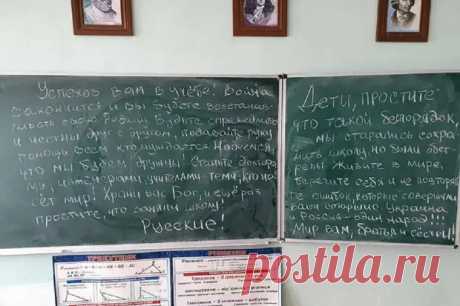 Успехов вам в учёбе! Война
закончится и вы будете восстана-
вливать свою Родину. Будьте справедливы
и честны друг с другом, подавайте руку
помощи всем кто нуждается. Надеемся,
что мы будем дружны! Станьте доктора-
ми, инженерами, учителями, теми, кто не-
сёт мир! Храни вас Бог, и ещё раз
простите, что заняли школу!
Русские!
Дети, простите
что такой беспорядок,
мы старались сохра-
нить школу, но были обст-
релы. Живите в мире,
берегите себя и не повторяй-
те ошибок, которые совершили
ваши старшие. Украина
и Россия – один народ!!!
Мир вам, братья и сёстры!
ТРИКУТНИК
postila.ru